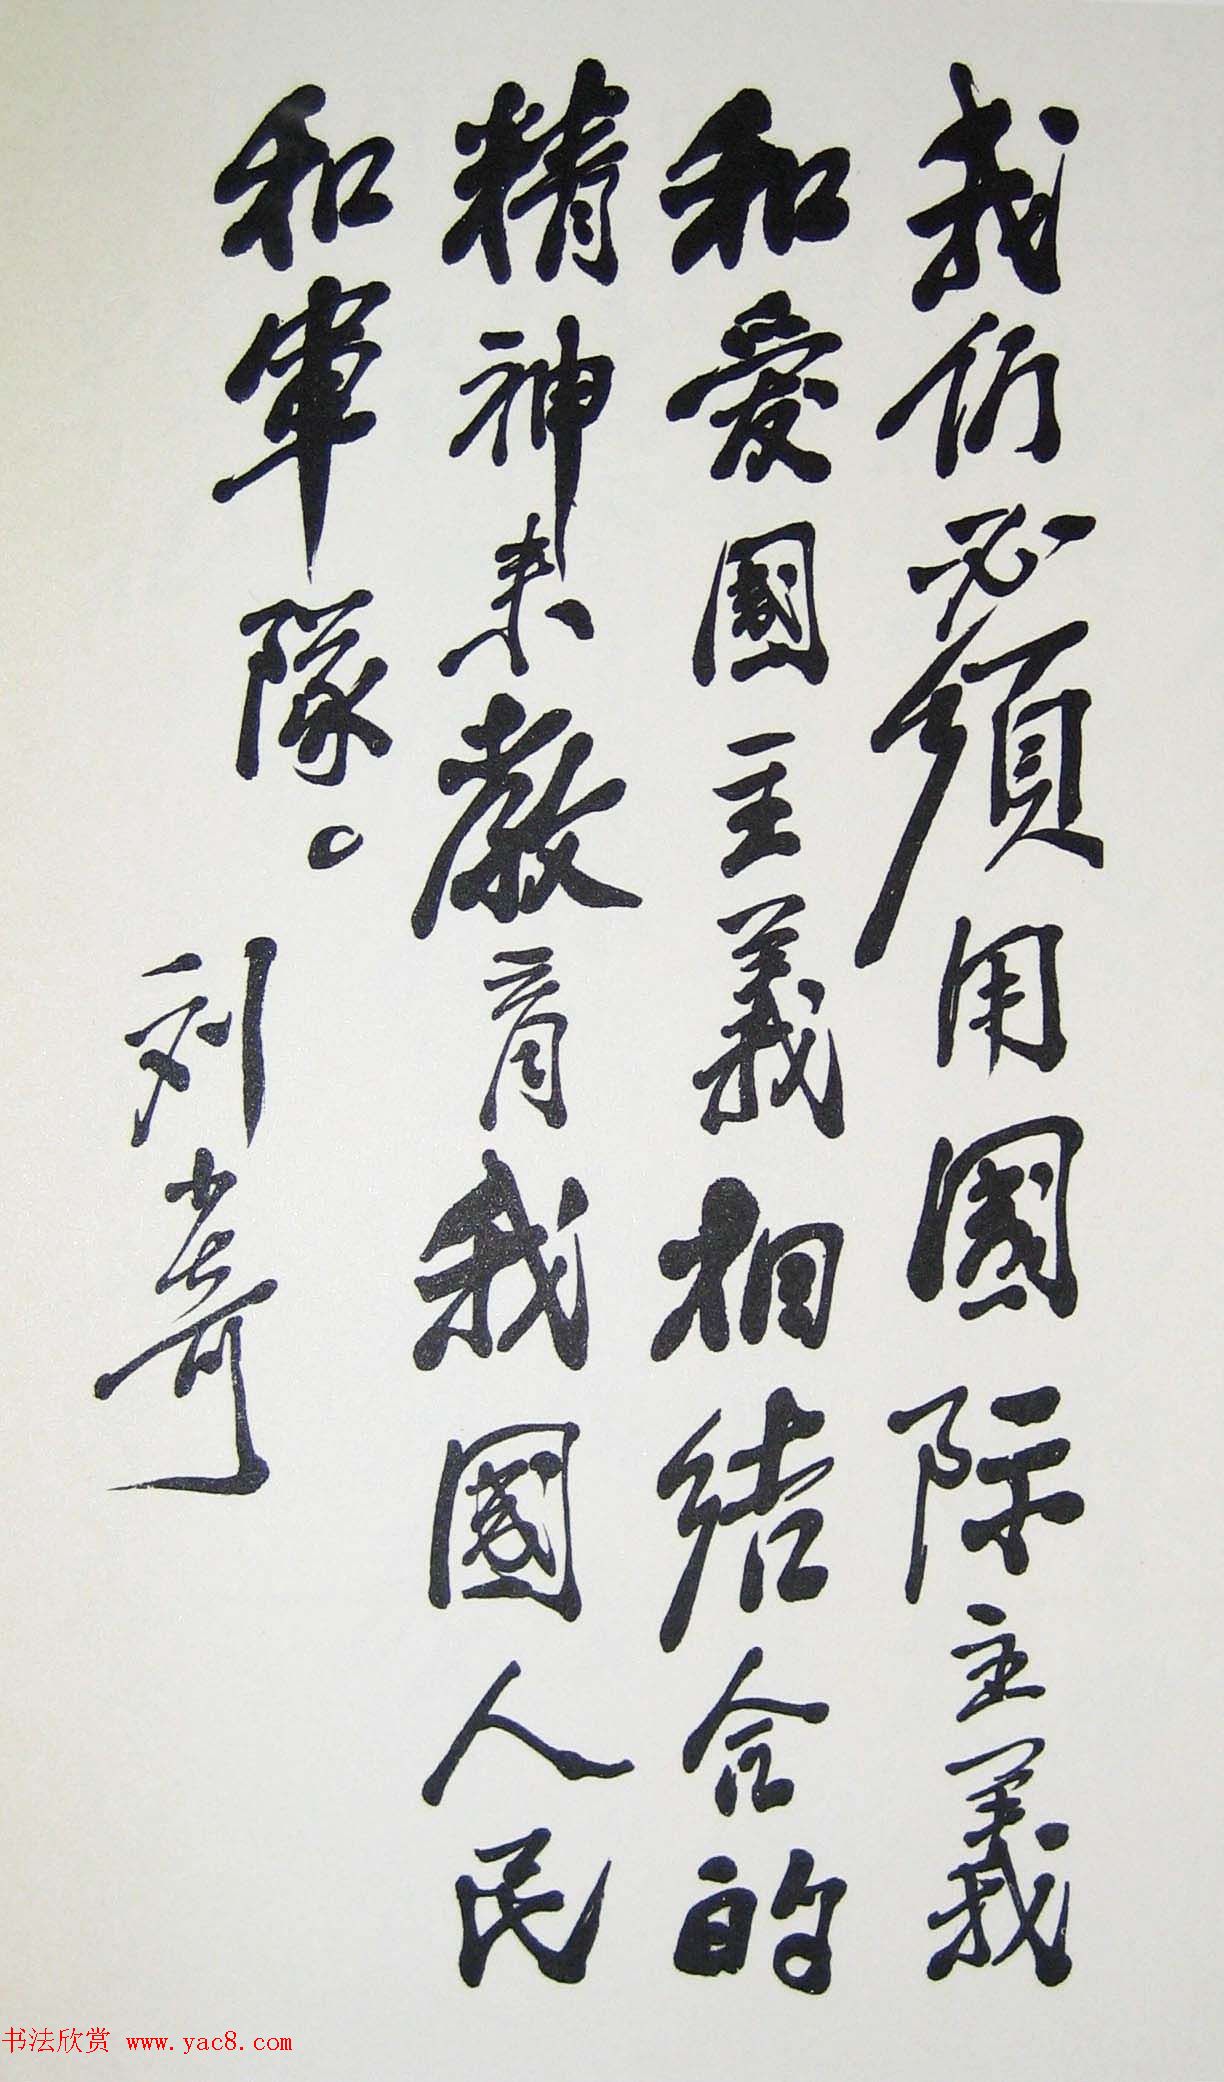 我们必須用國际主義
和爱國主義相结合的
精神来教育我國人民
和軍隊。
刘少奇
书法欣赏 www.yac8.com